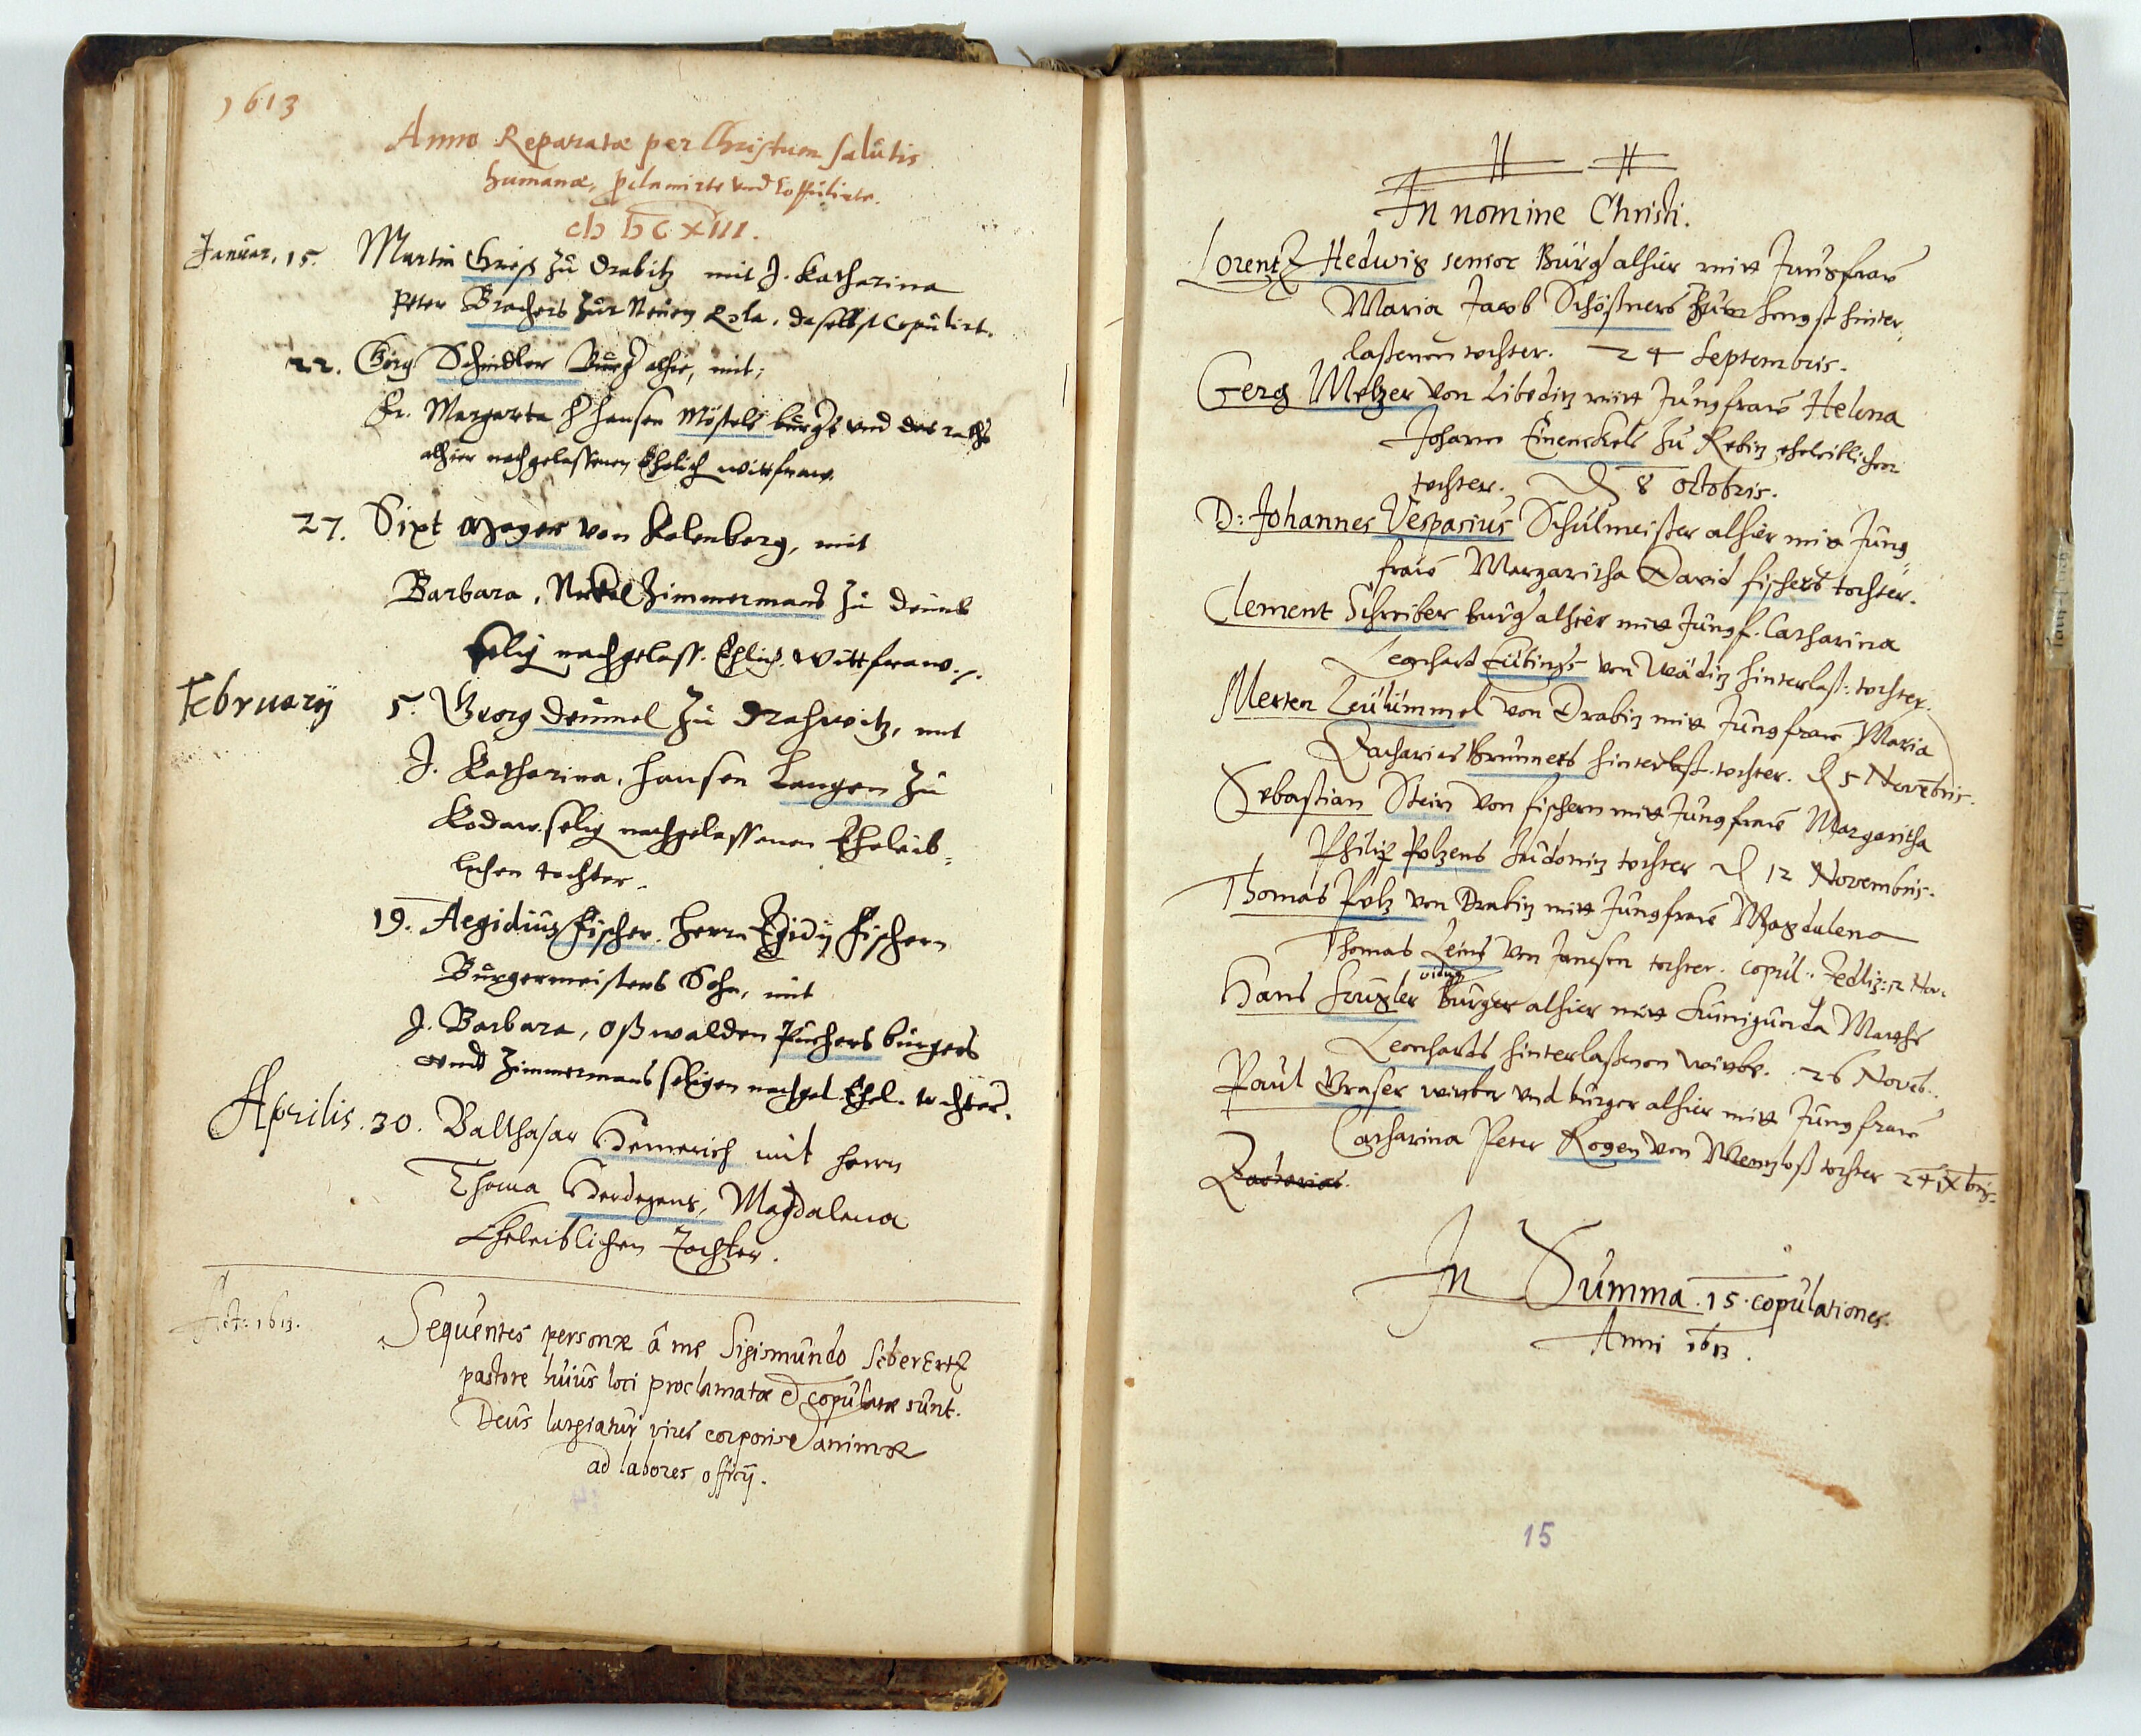 1613
Anno Reparatæ per Christum salutis
humanæ, und
cIɔ Iɔ C XIII.
Januar. 15. Martin zu Drabitz mit J. Katharina
Peter Brachers zur Neuen Rola, daselbst Copulirt.
22. Görg Schindler Burg alhie, mit,
Fr. Margareta H Hansen Möstels burgs und des raths
alhier nachgelassenen Ehelich wittfraw.
27. Sixt Mayer von Kalenberg, mit
Barbara, Nickel Zimmermans zu
selig nachgelass. Ehlich. wittfraw.
February 5. Georg Deumel zu Drahwitz, mit
J. Katharina, Hansen Langen zu
Kodaw selig nachgelassenen Eheleib-
lichen tochter.
19. Aegidius Fischer. Herrn Egidij Fischern
Burgermeisters Sohn, mit
J. Barbara, Oßwalden Puchers burgers
undt Zimmermans seligen nachgel. Ehel. tochter.
Aprilis. 30. Balthasar Hemerich mit herrn
Thoma Herdegens, Magdalena
Eheleiblichen Tochter.
1613.
Sequentes personæ â me Sigismundo
pastore huius loci proclamatæ & copulatæ sunt.
Deus largiatur vires corporis & animæ
ad labores officij.
In nomine Christi.
Lorentz Hedwig senior Burg alhier mitt Jungfraw
Maria Jacob Schößners hinter-
laßenen tochter. 24 Septembris.
Gerg Meltzer von Libeditz mitt Jungfraw Helena
Johann zu Rebitz eheleiblichen
tochter. 8 Octobris.
D: Johannes Vesparius Schulmeister alhier mitt Jung-
fraw Margaritha David fischers tochter.
Clement Schreiber burg alhier mitt Jungf. Catharina
Leonhard von hinterlaß: tochter.
Merten von Drabitz mitt Jungfraw Maria
Zacharias Brunners hinterlaß. tochter. 5 Novēbris.
Sebastian Stein von fischern mitt Jungfraw Margaritha
Philip Polzens tochter 12 Novembris.
Thomas Polz von Drabitz mitt Jungfraw Magdalena
Thomas von Janesen tochter. copul. Zedliz: 12 Nov.
Hans Burger alhier mitt Kunigunda
Leonhards hinterlaßenen witbe. 26 Novēb.
Paul Graser witber und burger alhier mitt Jungfraw
Catharina Peter Rogen von tochter 24 IXbris.
Zacharias.
In Summa. 15. copulationes.
Anni 1613.
15